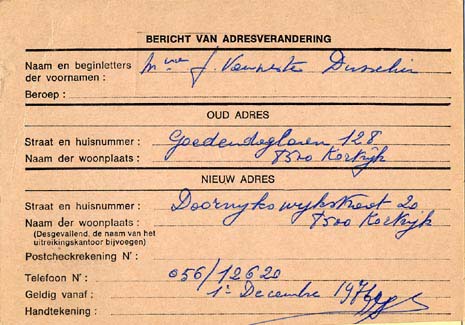 BERICHT VAN ADRESVERANDERING
Naam en beginletters
der voornamen : Mme J. Vanneste
Beroep :
OUD ADRES
Straat en huisnummer : 128
Naam der woonplaats : 8500 Kortrijk
NIEUW ADRES
Straat en huisnummer : Doornykswykstraat 20
Naam der woonplaats : 8500 Kortrijk
(Desgevallend, de naam van het
uitreikingskantoor bijvoegen)
Postcheckrekening N° :
Telefoon N° : 056/12620
Geldig vanaf : 1e Decembre 1976
Handtekening :